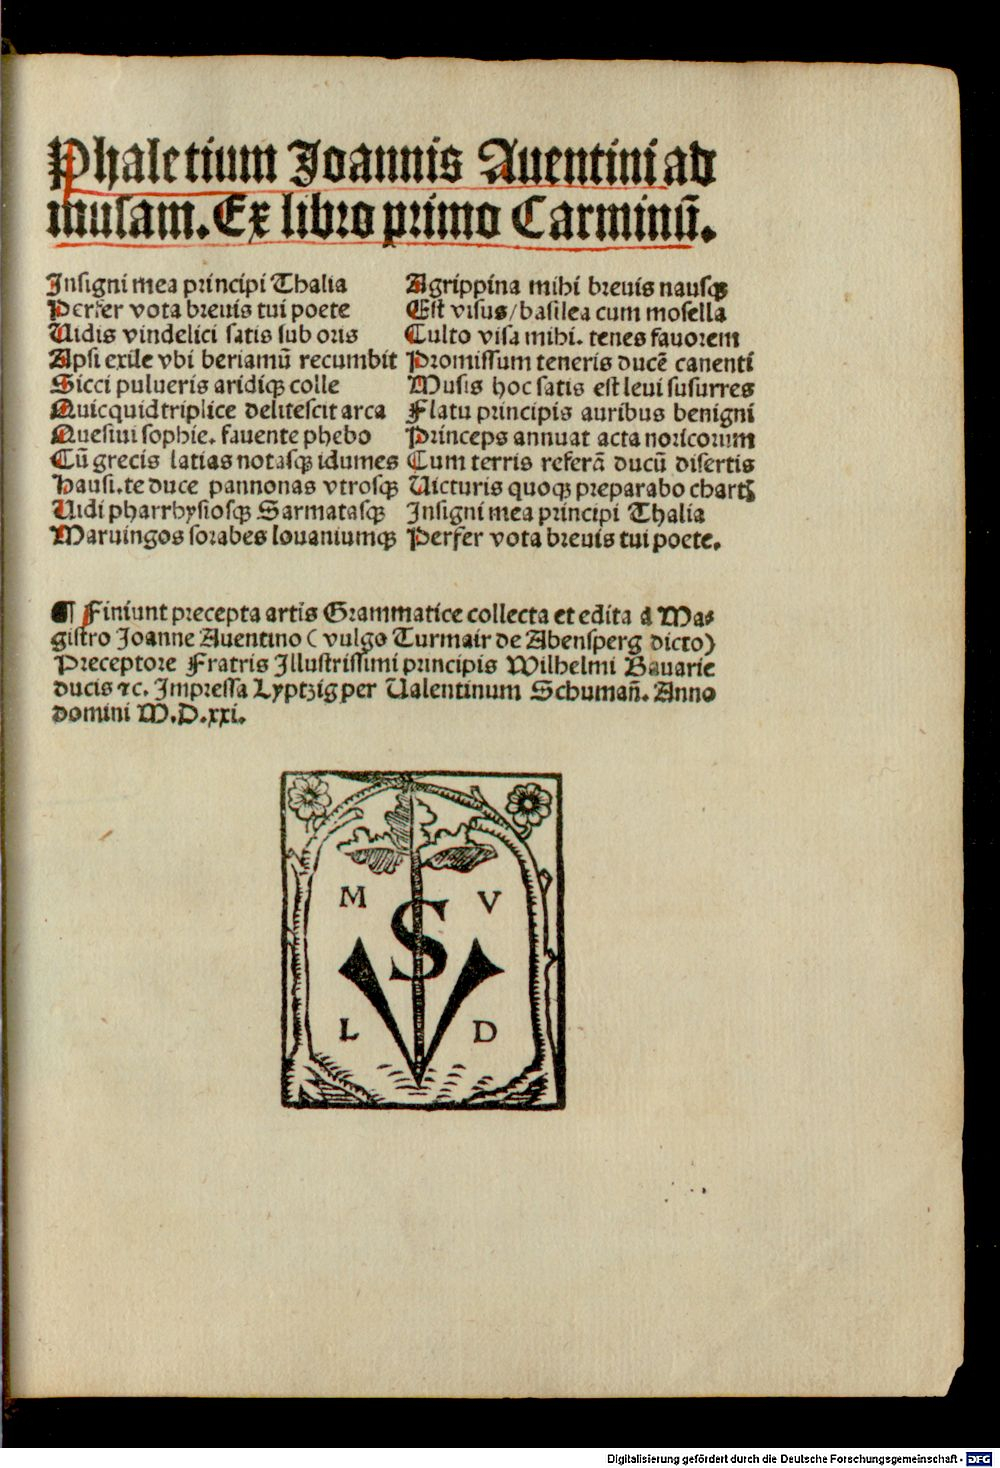 Phaletium Joannis Auentini ad
musam. Ex libro primo Carminū.
Insigni mea principi Thalia
Perfer vota breuis tui poete
Uidis vindelici satis sub oris
Apsi exile vbi beriamū recumbit
Sicci pulueris aridiqꝫ colle
Quicquid triplice delitescit arca
Quesiui sophie. fauente phebo
Cū grecis latias notasqꝫ idumes
Hausi. te duce pannonas vtrosqꝫ
Uidi pharrhysiosqꝫ Sarmatasqꝫ
Maruingos sorabes louaniumqꝫ
Agrippina mihi breuis nausqꝫ
Est visus/basilea cum mosella
Culto visa mihi. tenes fauorem
Promissum teneris ducē canenti
Musis hoc satis est leui susurres
Flatu principis auribus benigni
Princeps annuat acta noricorum
Cum terris referā ducū disertis
Uicturis quoqꝫ preparabo
Insigni mea principi Thalia
Perfer vota breuis tui poete.
¶ Finiunt precepta artis Grammatice collecta et edita a Ma⸗
gistro Joanne Auentino (vulgo Turmair de Abensperg dicto)
Preceptore Fratris Illustrissimi principis Wilhelmi Bauarie
ducis ⁊c. Impressa Lyptzig per Ualentinum Schumañ. Anno
domini M.D.xxi.
M V
S
L D
Digitalisierung gefördert durch die Deutsche Forschungsgemeinschaft - DFG